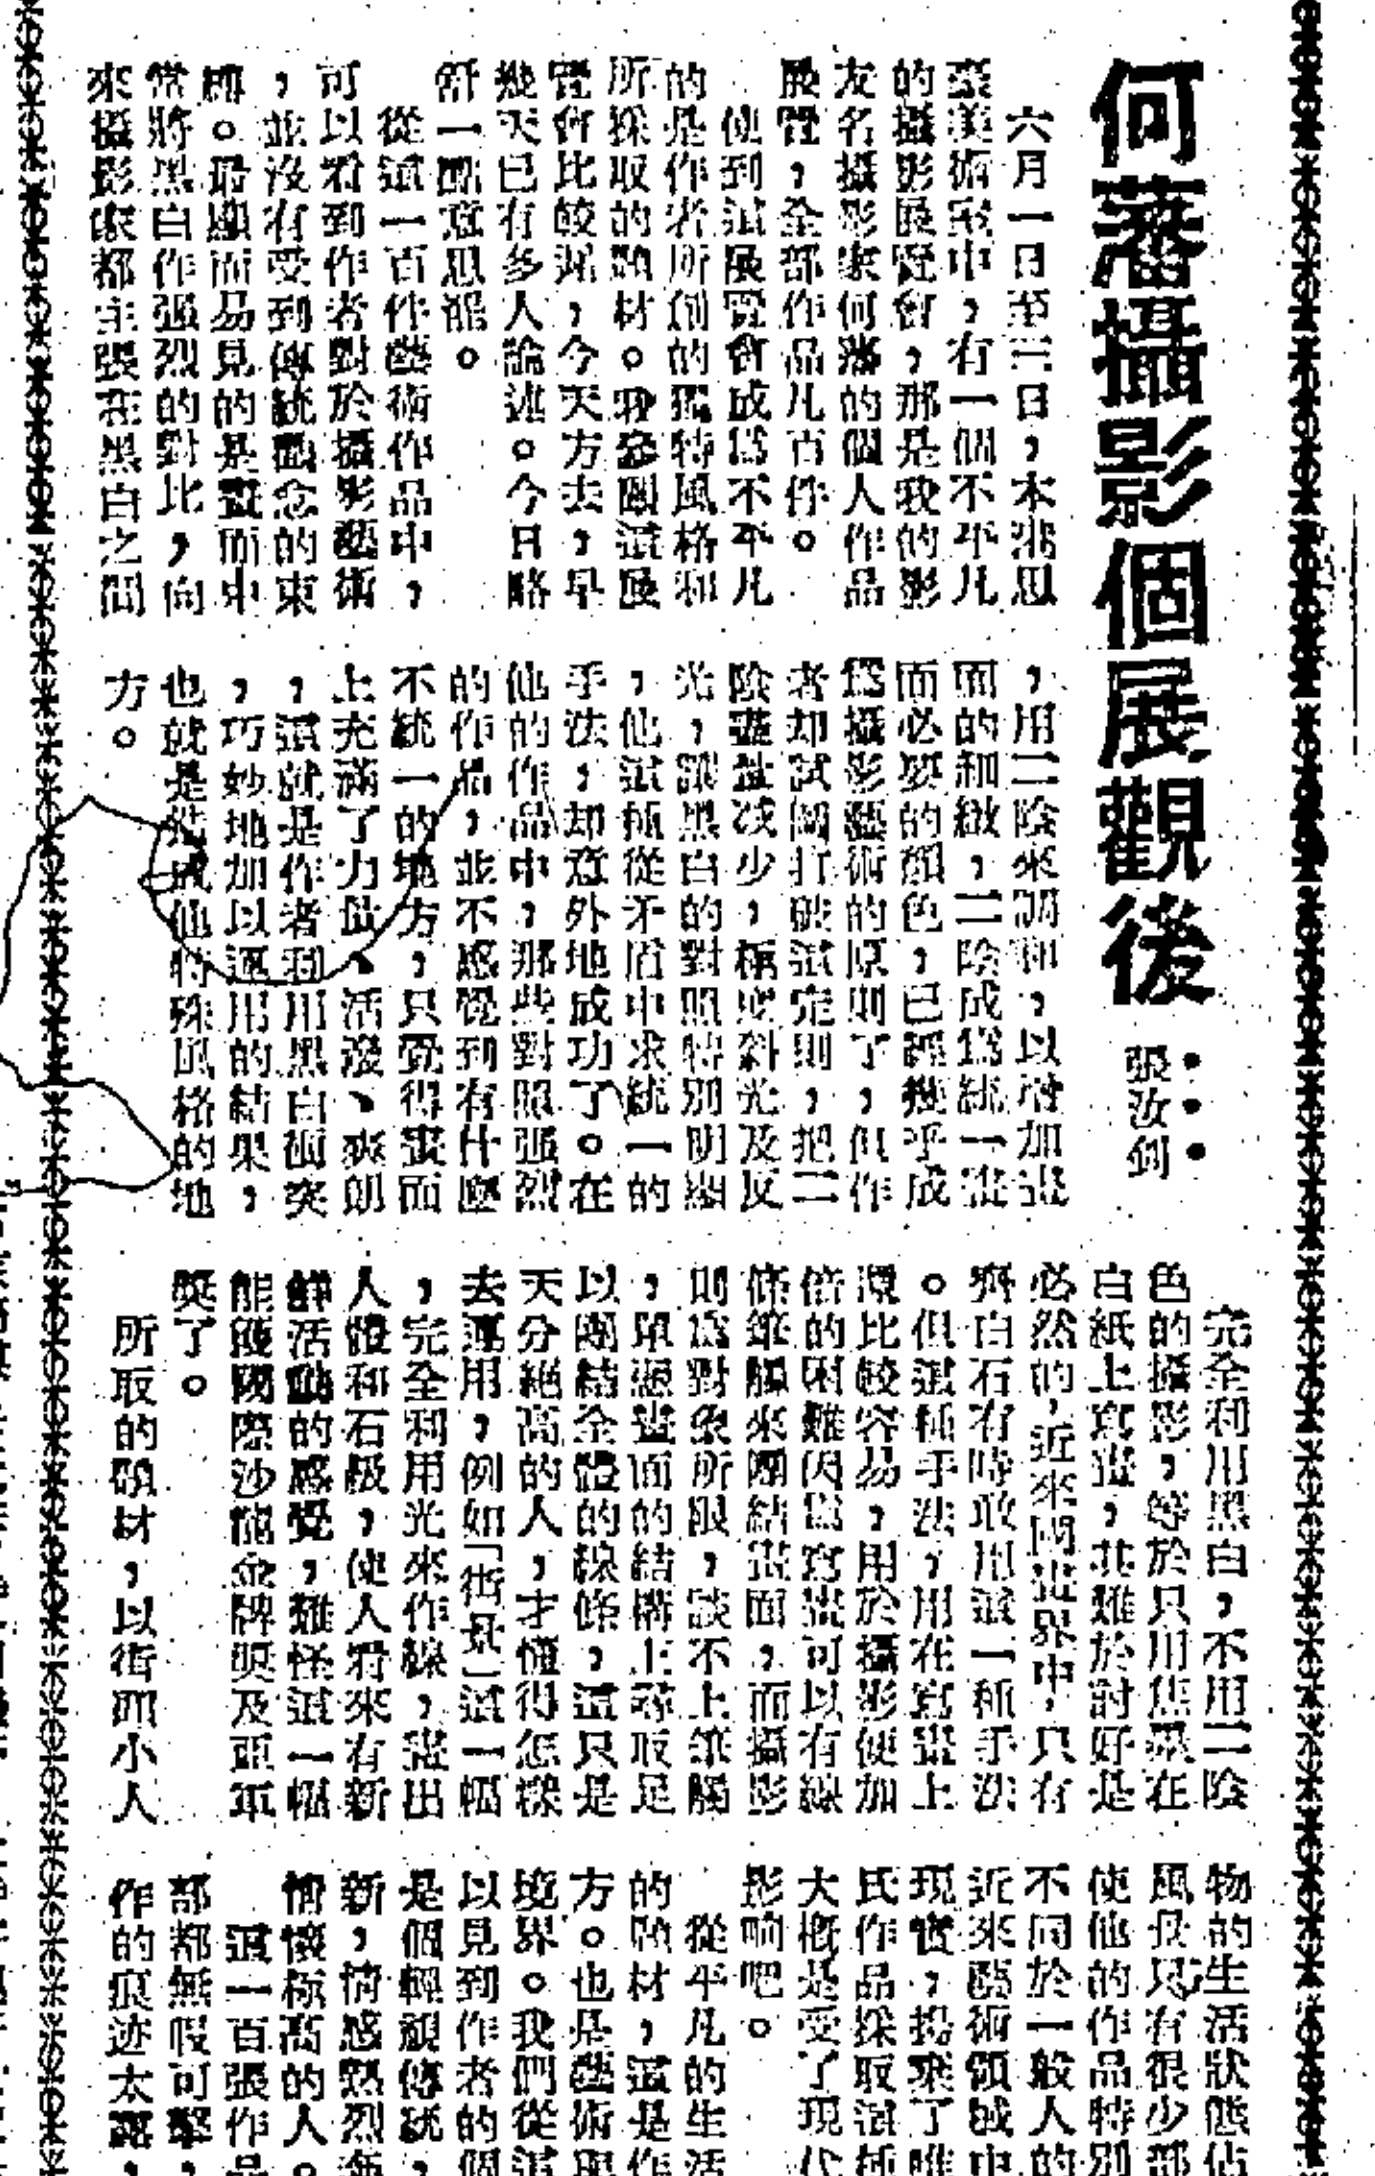 何藩攝影個展觀後
張汝釗
六月一日至三日，本港思
豪美術院中，有一個不平凡
的攝影展覽會，那是我的影
友名攝影家何藩的個人作品
展覽，全部作品凡百件。
使到這展覽會成爲不平凡
的是作者所創的獨特風格和
所採取的題材。我參觀這展
覽會比較遲，今天方去，早
幾天已有多人論述。今日略
舒一點意思罷。
從這一百件藝術作品中，
可以看到作者對於攝影藝術
，並沒有受到傳統觀念的束
縛。最顯而易見的是畫面中
常將黑白作强烈的對比，向
來攝影家都主張在黑白之間
，用二陰來調和，以增加畫
面的和緻，二陰成爲統一畫
面必要的顏色，已經幾乎成
爲攝影藝術的原則了，但作
者却試圖打破這定則，把二
陰盡量減少，稱度斜光及反
光，讓黑白的對照特別明顯
，他這種從矛盾中求統一的
手法，却意外地成功了。在
他的作品中，那些對照强烈
的作品，並不感覺到有什麼
不統一的地方，只覺得畫面
上充滿了力量、活潑、爽朗
，這就是作者利用黑白衝突
，巧妙地加以運用的結果，
也就是造成他特殊風格的地
方。
完全利用黑白，不用二陰
色的攝影，等於只用焦墨在
白紙上寫畫，其難於討好是
必然的，近來國畫界中，只有
齊白石有時敢用這一種手法
。但這種手法，用在寫畫上
還比較容易，用於攝影便加
倍的困難因爲寫畫可以有線
條筆觸來團結畫面，而攝影
則爲對象所限，談不上筆觸
，單憑畫面的結構上尋取足
以團結全體的線條，這只是
天分絕高的人，才懂得怎樣
去運用，例如「街景」這一幅
，完全利用光來作線，畫出
人體和石級，使人看來有新
鮮活動的感覺，難怪這一幅
能獲國際沙龍金牌奬及亞軍
奬了。
所取的題材，以街頭小人
物的生活狀態佔
風景只有很少部
使他的作品特別
不同於一般人的
近來藝術領域中
現實，揚棄了唯
氏作品採取這種
大槪是受了現代
影响吧。
從平凡的生活
的題材，這是作
方。也是藝術現
境界。我們從這
以見到作者的個
是個輕視傳統，
新，情感熱烈海
情懷極高的人。
這一百張作品
部都無暇可擊，
作的痕迹太露，